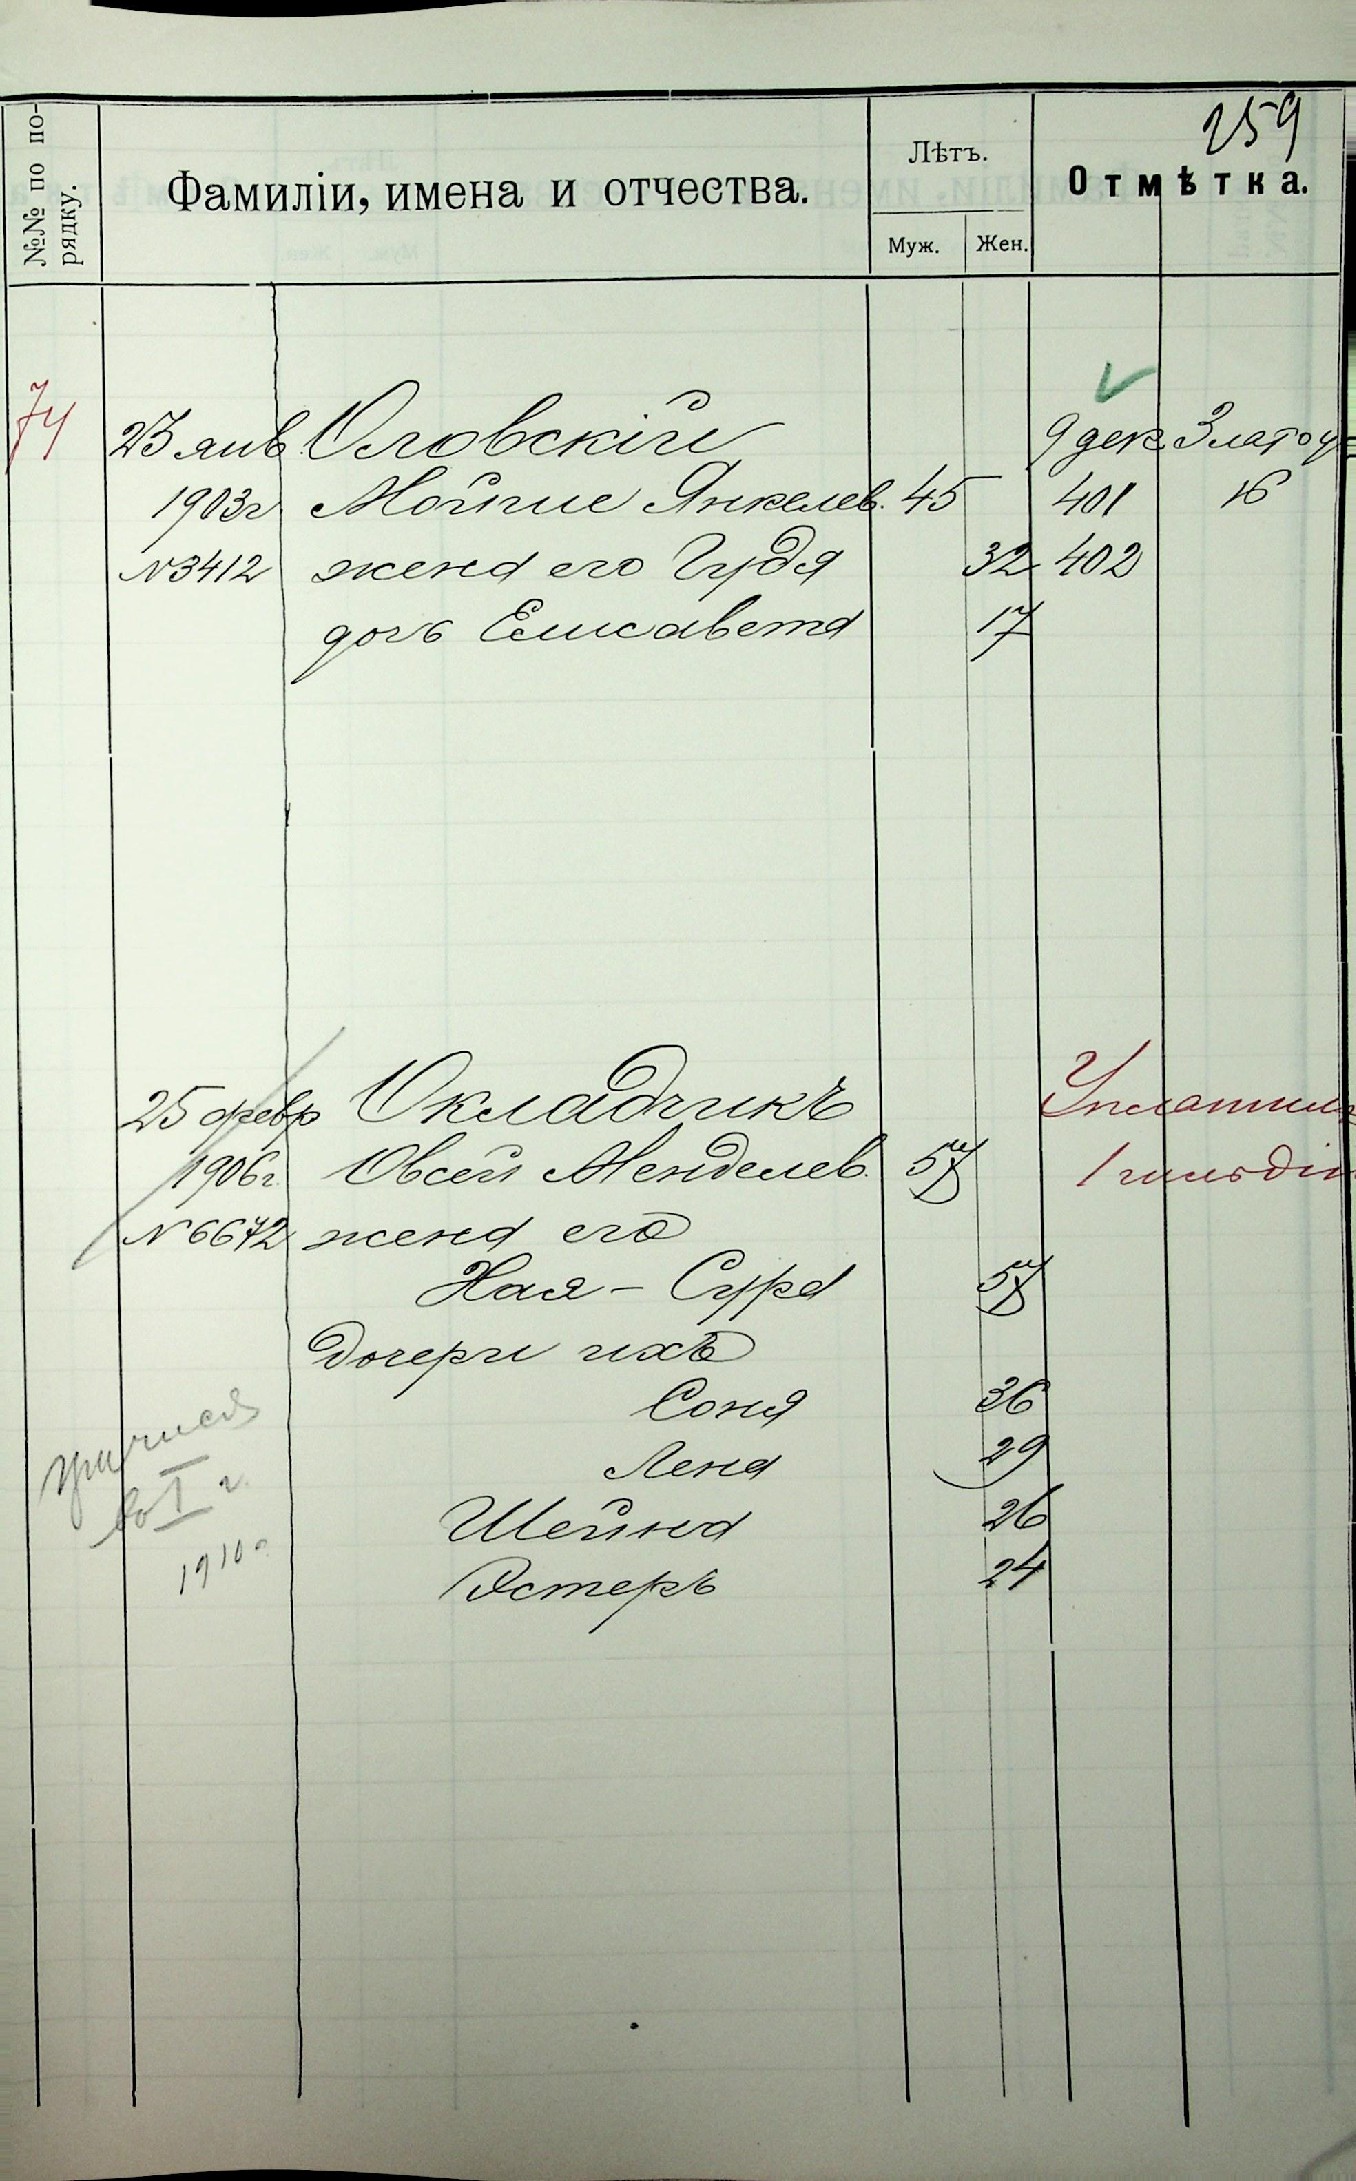 259
№№ по по-
рядку.
Фамиліи, имена и отчества.
Лѣтъ.
Муж.
Жен.
Отмѣтка.
74
23 янв Оловскій 9 дек Златоу=
1903г Мойше Янкелев. 45 401 16
№3412 жена его Гудя 32 402
дочь Елисавета 17
25 февр Окладчикъ Уплатилъ
1906г. Овсей Менделев. 57 1 гильдію
№6672 жена его
Хая-Сура 57
дочери ихъ
Соня 36
Лена 29
Шейна 26
Эстеръ 24
во I г.
1910г.